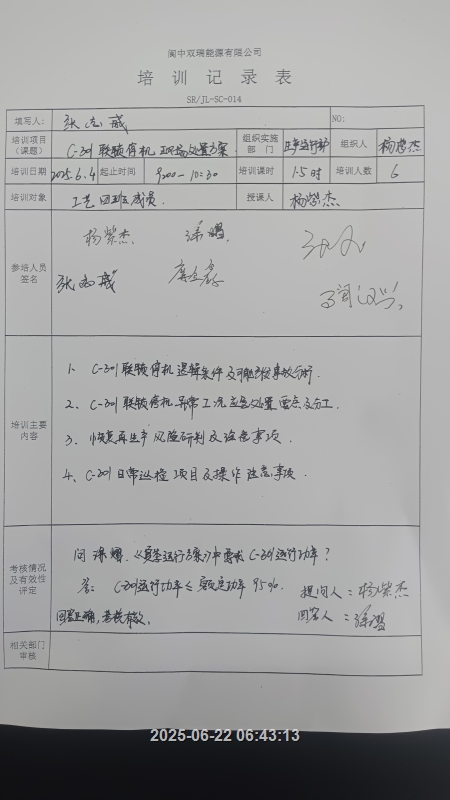 阆中双瑞能源有限公司
培训记录表
SR/JL-SC-014
填写人: 张志威 NO:
培训项目(课题) C-301联锁停机现场处置方案 组织实施部门 正华运行部 组织人 杨紫杰
培训日期 2025.6.4 起止时间 9:00-10:30 培训课时 1.5时 培训人数 6
培训对象 工艺四班成员. 授课人 杨紫杰
参培人员签名
杨紫杰
张志威
培训主要内容
1、C-301联锁停机逻辑条件及可能导致事故分析.
2、C-301联锁停机异常工况应急处置重点及分工.
3、恢复再生产风险研判及注意事项.
4、C-301日常巡检项目及操作注意事项.
考核情况及有效性评定
问 《夏季运行方案》中要求C-301运行功率?
答: C-301运行功率≤额定功率95%. 提问人: 杨紫杰
回答正确,考核有效. 回答人:
相关部门审核
2025-06-22 06:43:13